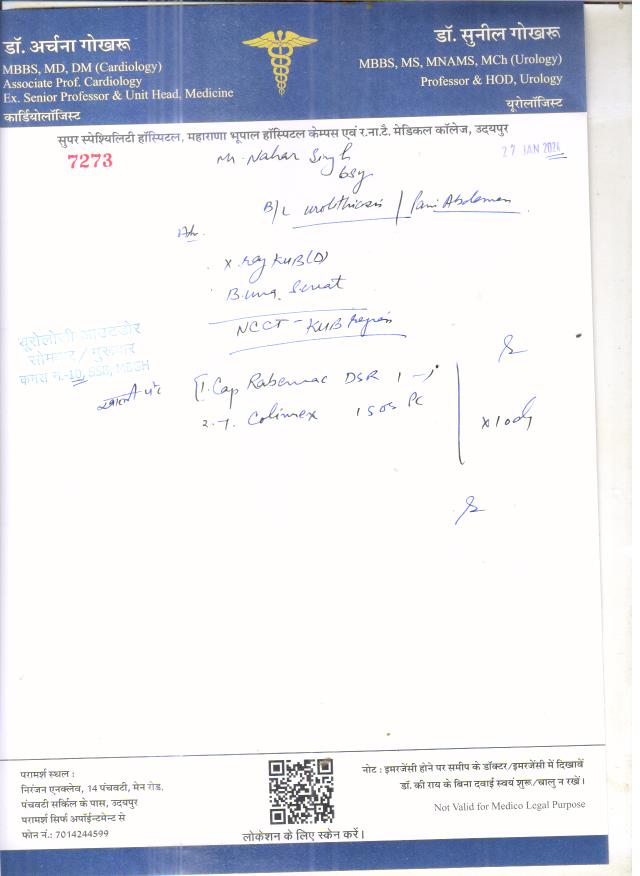 डॉ. अर्चना गोखरू
MBBS, MD, DM (Cardiology)
Associate Prof. Cardiology
Ex. Senior Professor & Unit Head, Medicine
कार्डियोलॉजिस्ट
डॉ. सुनील गोखरू
MBBS, MS, MNAMS, MCh (Urology)
Professor & HOD, Urology
यूरोलॉजिस्ट
सुपर स्पेश्यिलिटी हॉस्पिटल, महाराणा भूपाल हॉस्पिटल केम्पस एवं र.ना.टै. मेडिकल कॉलेज, उदयपुर
7273
27 JAN 202
Mr. Nahar Singh
65y
B/L urolithiasis / Pain Abdomen
X. ray KUB
NCCT - KUB Region
यूरोलोजी आउटडोर
सोमवार / गुरूवार
कमरा नं.-10, SSB, MBGH
1. Cap DSR 1 -
2. T. Colimex 1 SOS PC
x 10d
परामर्श स्थल :
निरंजन एनक्लेव, 14 पंचवटी, मेन रोड,
पंचवटी सर्किल के पास, उदयपुर
परामर्श सिर्फ अपॉईन्टमेन्ट से
फोन नं.: 7014244599
लोकेशन के लिए स्केन करें।
नोट : इमरजेंसी होने पर समीप के डॉक्टर/इमरजेंसी में दिखावें
डॉ. की राय के बिना दवाई स्वयं शुरू/चालु न रखें।
Not Valid for Medico Legal Purpose